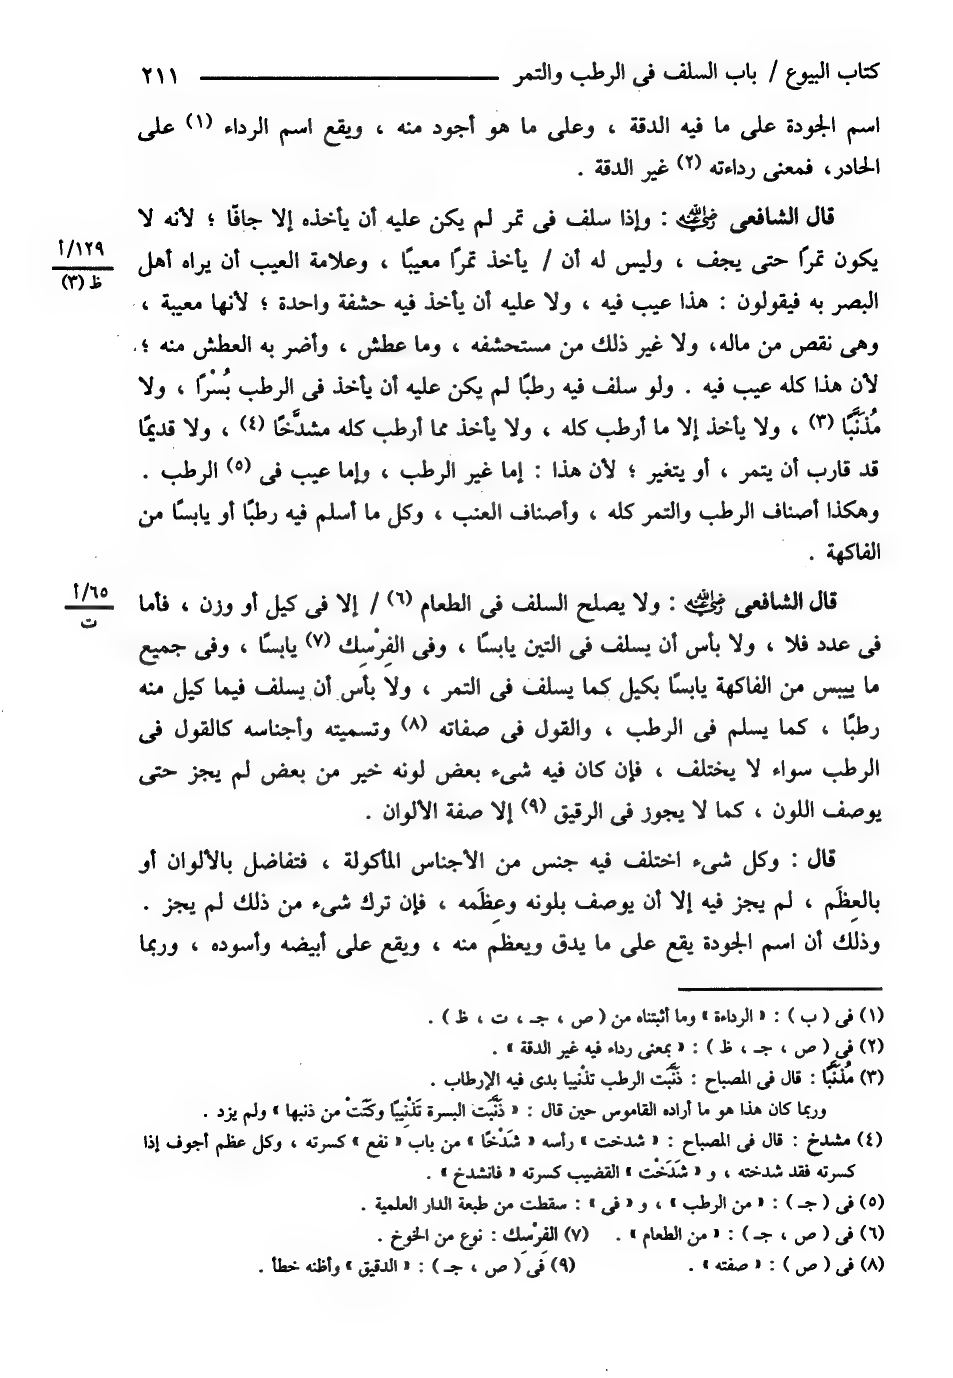 كتاب البيوع / باب السلف فى الرطب والتمر ٢١١
اسم الجودة على ما فيه الدقة ، وعلى ما هو أجود منه ، ويقع اسم الرداء (١) على
الحادر، فمعنى رداءته (٢) غير الدقة .
قال الشافعى رضي الله عنه : وإذا سلف فى تمر لم يكن عليه أن يأخذه إلا جافًا ؛ لأنه لا
يكون تمرًا حتى يجف ، وليس له أن / يأخذ تمرًا معيبًا ، وعلامة العيب أن يراه أهل
١٢٩/أ
ظ (٣)
البصر به فيقولون : هذا عيب فيه ، ولا عليه أن يأخذ فيه حشفة واحدة ؛ لأنها معيبة ،
وهى نقص من ماله، ولا غير ذلك من مستحشفه ، وما عطش ، وأضر به العطش منه ؛
لأن هذا كله عيب فيه . ولو سلف فيه رطبًا لم يكن عليه أن يأخذ فى الرطب بُسْرًا ، ولا
مُذَنِّبًا (٣) ، ولا يأخذ إلا ما أرطب كله ، ولا يأخذ مما أرطب كله مشدَّخًا (٤) ، ولا قديمًا
قد قارب أن يتمر ، أو يتغير ؛ لأن هذا : إما غير الرطب ، وإما عيب فى (٥) الرطب .
وهكذا أصناف الرطب والتمر كله ، وأصناف العنب ، وكل ما أسلم فيه رطبًا أو يابسًا من
الفاكهة .
قال الشافعى رضي الله عنه : ولا يصلح السلف فى الطعام (٦) / إلا فى كيل أو وزن ، فأما
٦٥/أ
ت
فى عدد فلا ، ولا بأس أن يسلف فى التين يابسًا ، وفى الفِرْسِك (٧) يابسًا ، وفى جميع
ما ييبس من الفاكهة يابسًا بكيل كما يسلف فى التمر ، ولا بأس أن يسلف فيما كيل منه
رطبًا ، كما يسلم فى الرطب ، والقول فى صفاته (٨) وتسميته وأجناسه كالقول فى
الرطب سواء لا يختلف ، فإن كان فيه شىء بعض لونه خير من بعض لم يجز حتى
يوصف اللون ، كما لا يجوز فى الرقيق (٩) إلا صفة الألوان .
قال : وكل شىء اختلف فيه جنس من الأجناس المأكولة ، فتفاضل بالألوان أو
بالعِظَم ، لم يجز فيه إلا أن يوصف بلونه وعِظَمه ، فإن ترك شىء من ذلك لم يجز .
وذلك أن اسم الجودة يقع على ما يدق ويعظم منه ، ويقع على أبيضه وأسوده ، وربما
(١) فى ( ب ) : « الرداءة » وما أثبتناه من ( ص ، جـ ، ت ، ظ ) .
(٢) فى ( ص ، جـ ، ظ ) : « بمعنى رداء فيه غير الدقة » .
(٣) مُذَنِّبًا : قال فى المصباح : ذَنَّبت الرطب تذْنيبا بدى فيه الإرطاب .
وربما كان هذا هو ما أراده القاموس حين قال : « ذَنَّبَت البسرة تَذْنِيبًا وكَتَتْ من ذنبها » ولم يزد .
(٤) مشدخ : قال فى المصباح : « شدخت » رأسه « شَدْخًا » من باب « نفع » كسرته ، وكل عظم أجوف إذا
كسرته فقد شدخته ، و « شَدَخْت » القضيب كسرته « فانشدخ » .
(٥) فى ( جـ ) : « من الرطب » ، و « فى » : سقطت من طبعة الدار العلمية .
(٦) فى ( ص ، جـ ) : « من الطعام » . (٧) الفِرْسِك : نوع من الخوخ .
(٨) فى ( ص ) : « صفته » . (٩) فى ( ص ، جـ ) : « الدقيق » وأظنه خطأ .